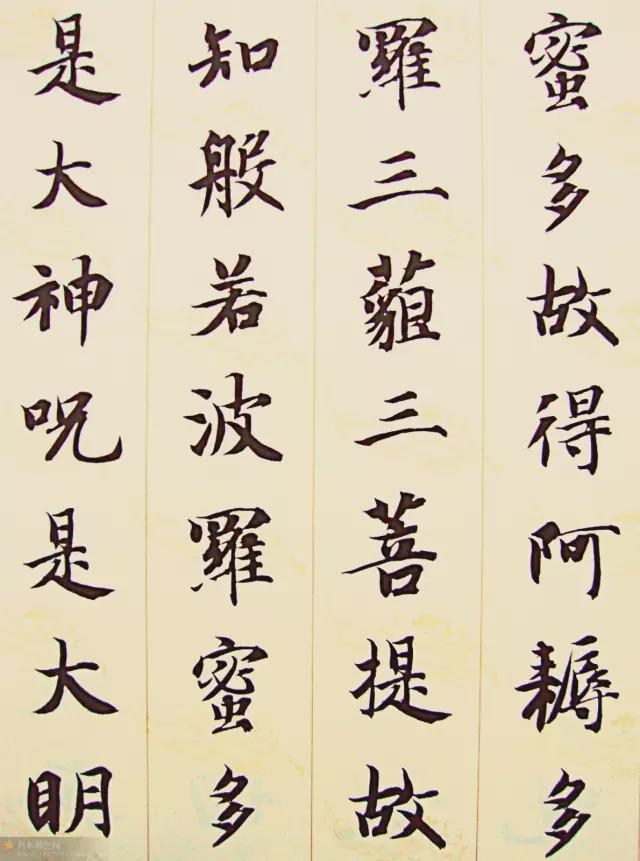 蜜多故得阿耨多
羅三藐三菩提故
知般若波羅蜜多
是大神咒是大明